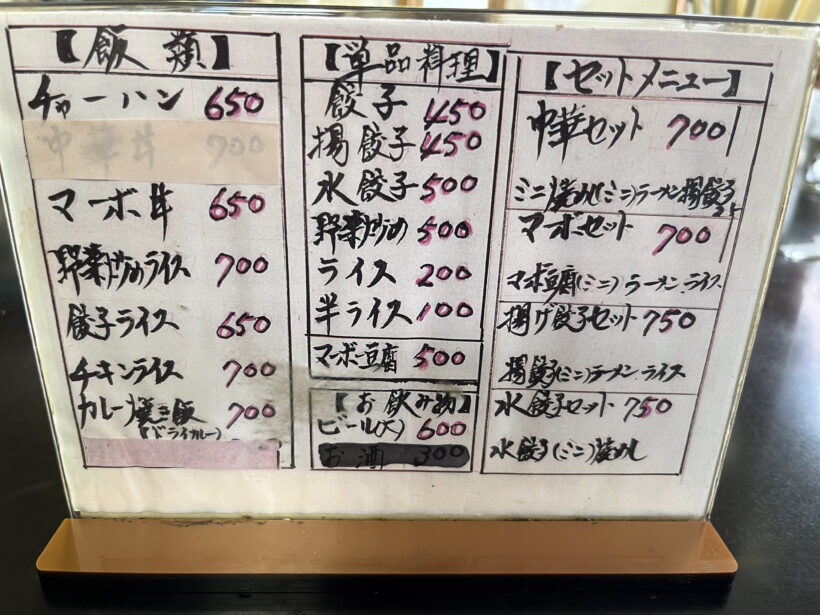 【飯類】
チャーハン 650
中華丼 700
マーボ丼 650
野菜炒めライス 700
餃子ライス 650
チキンライス 700
カレー焼き飯 700
【ドライカレー】
【単品料理】
餃子 450
揚餃子 450
水餃子 500
野菜炒め 500
ライス 200
半ライス 100
マーボー豆腐 500
【お飲み物】
ビール(大) 600
お酒 300
【セットメニュー】
中華セット 700
ミニ焼めし(ミニ)ラーメン揚餃子
マーボセット 700
マーボ豆腐(ミニ)ラーメン.ライス
揚げ餃子セット 750
揚餃子(ミニ)ラーメン.ライス
水餃子セット 750
水餃子(ミニ)焼めし